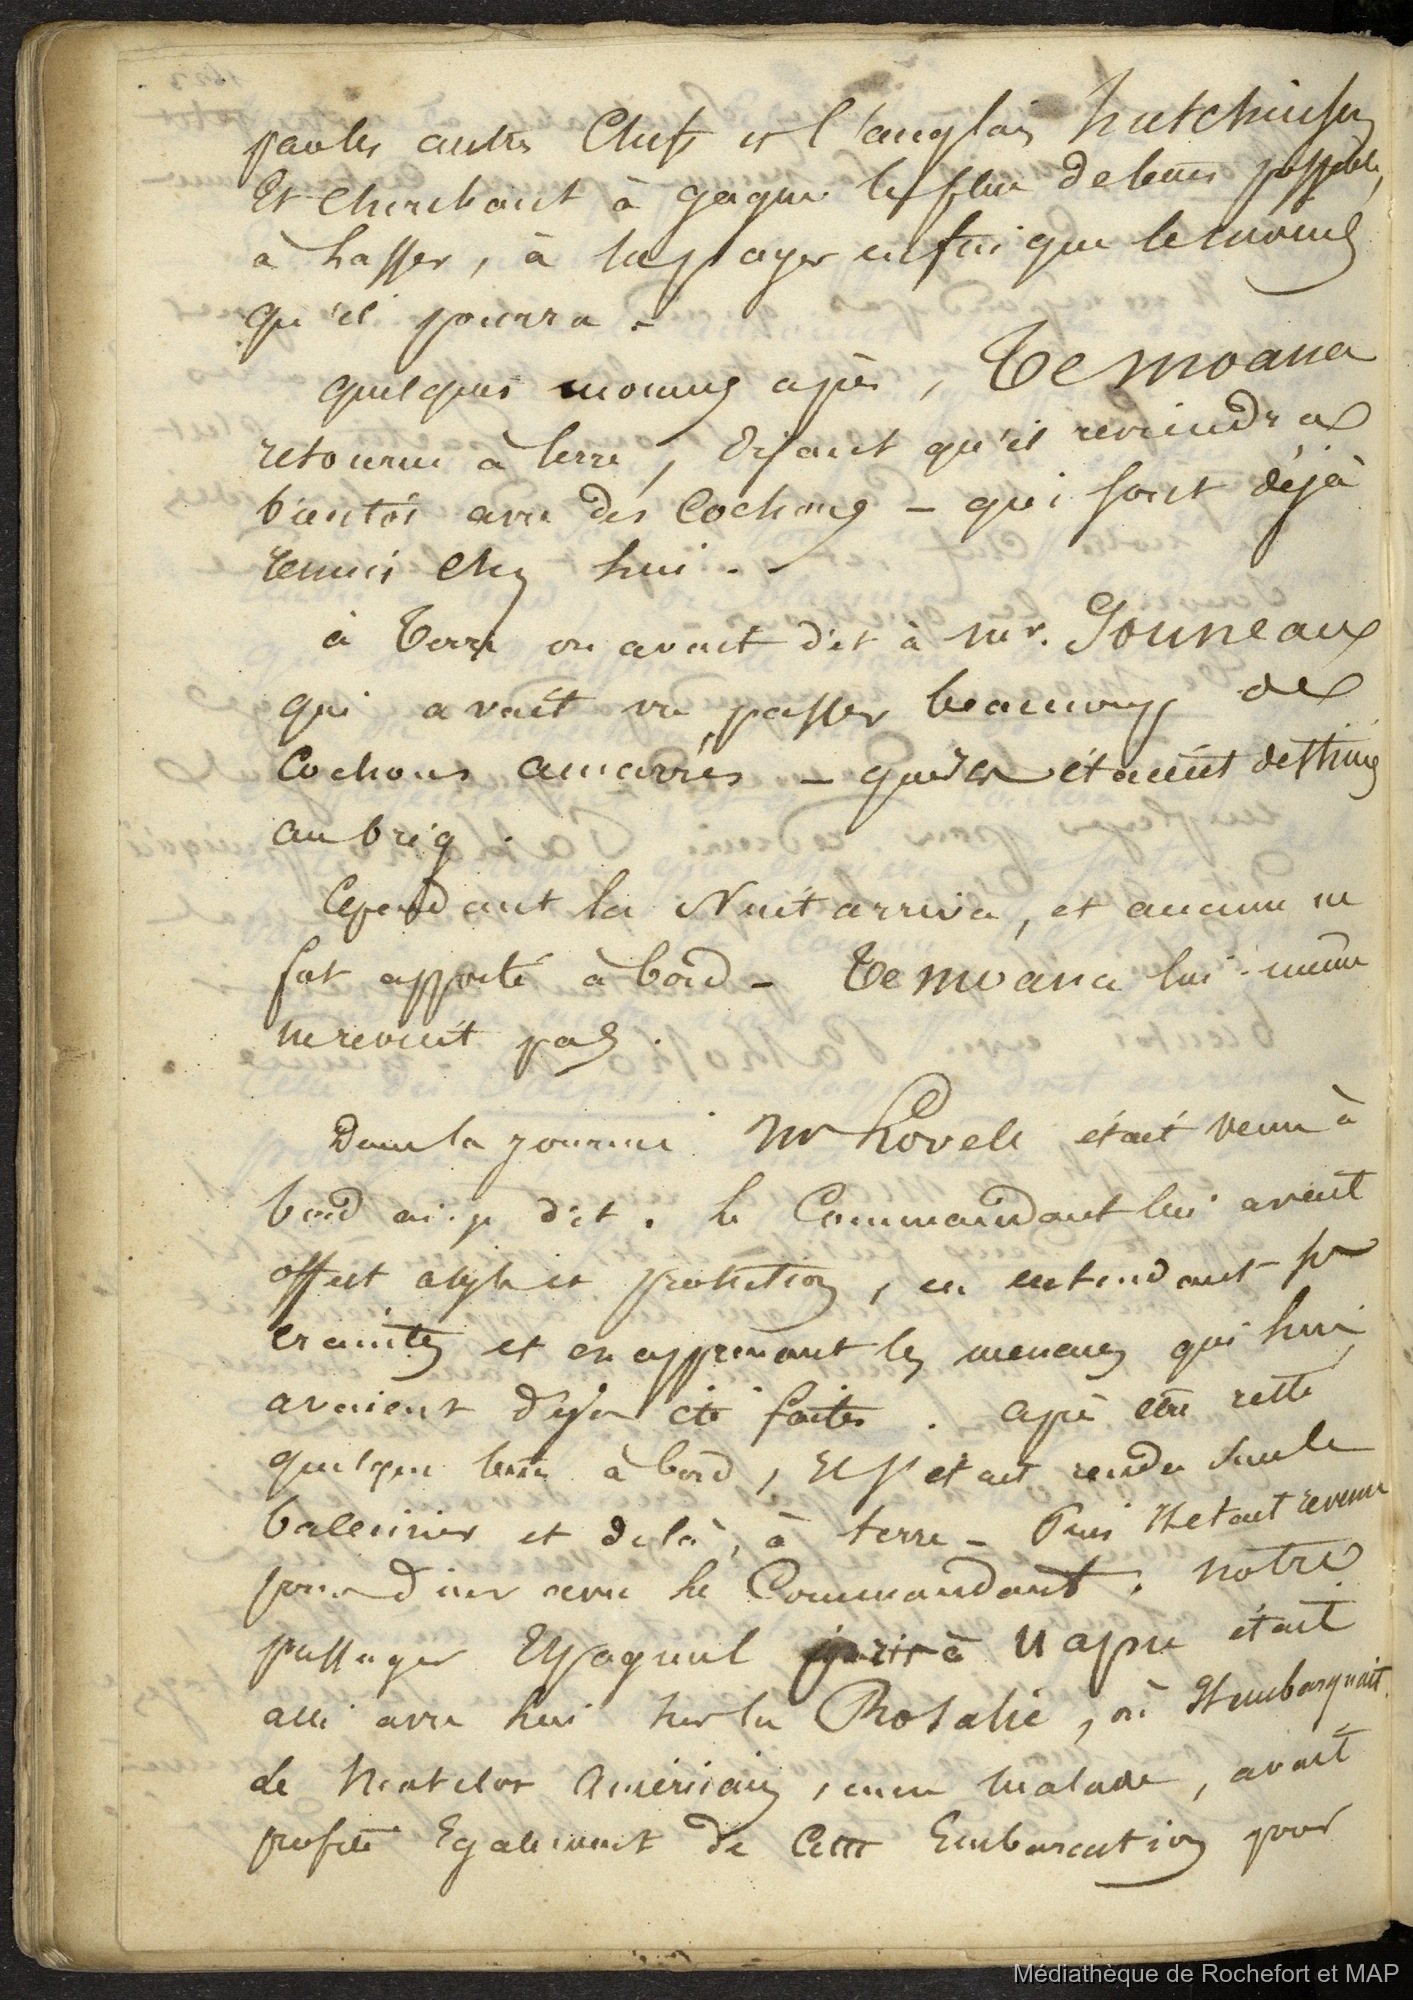 par les autres Chefs et l'anglais hutchinson
Et Cherchant à gagner le plus de tems possible,
à lasser, à ne payer enfin que le moins
qu'il pourra.
quelques momens après, Te moana
retourne à terre, disant qu'il reviendra
bientôt avec des Cochons - qui sont déjà
reunis chez lui. -
à Terre on avait dit à mr. Jouneau
qui avait vu passer beaucoup de
Cochons amarrés - qu'ils étaient destinés
au brig.
Cependant la Nuit arriva, et aucun ne
fut apporté à bord - Te moana lui-même
ne revint pas.
Dans la journée Mr Lovell était venu à
bord ai-je dit. le Commandant lui avait
offert asyle et protection, en entendant ses
craintes et en apprenant les menaces qui lui
avaient déjà été faites. après être resté
quelque tems à bord, Il s'était rendu sur le
baleinier et de là, à terre - Puis Il était revenu
pour diner avec le Commandant. notre
passager Espagnol pris à Uapou était
allé avec lui sur la Rosalie, où Il embarquait.
Le Matelot américain, malade, avait
profité Egalement de Cette Embarcation pour
Médiathèque de Rochefort et MAP